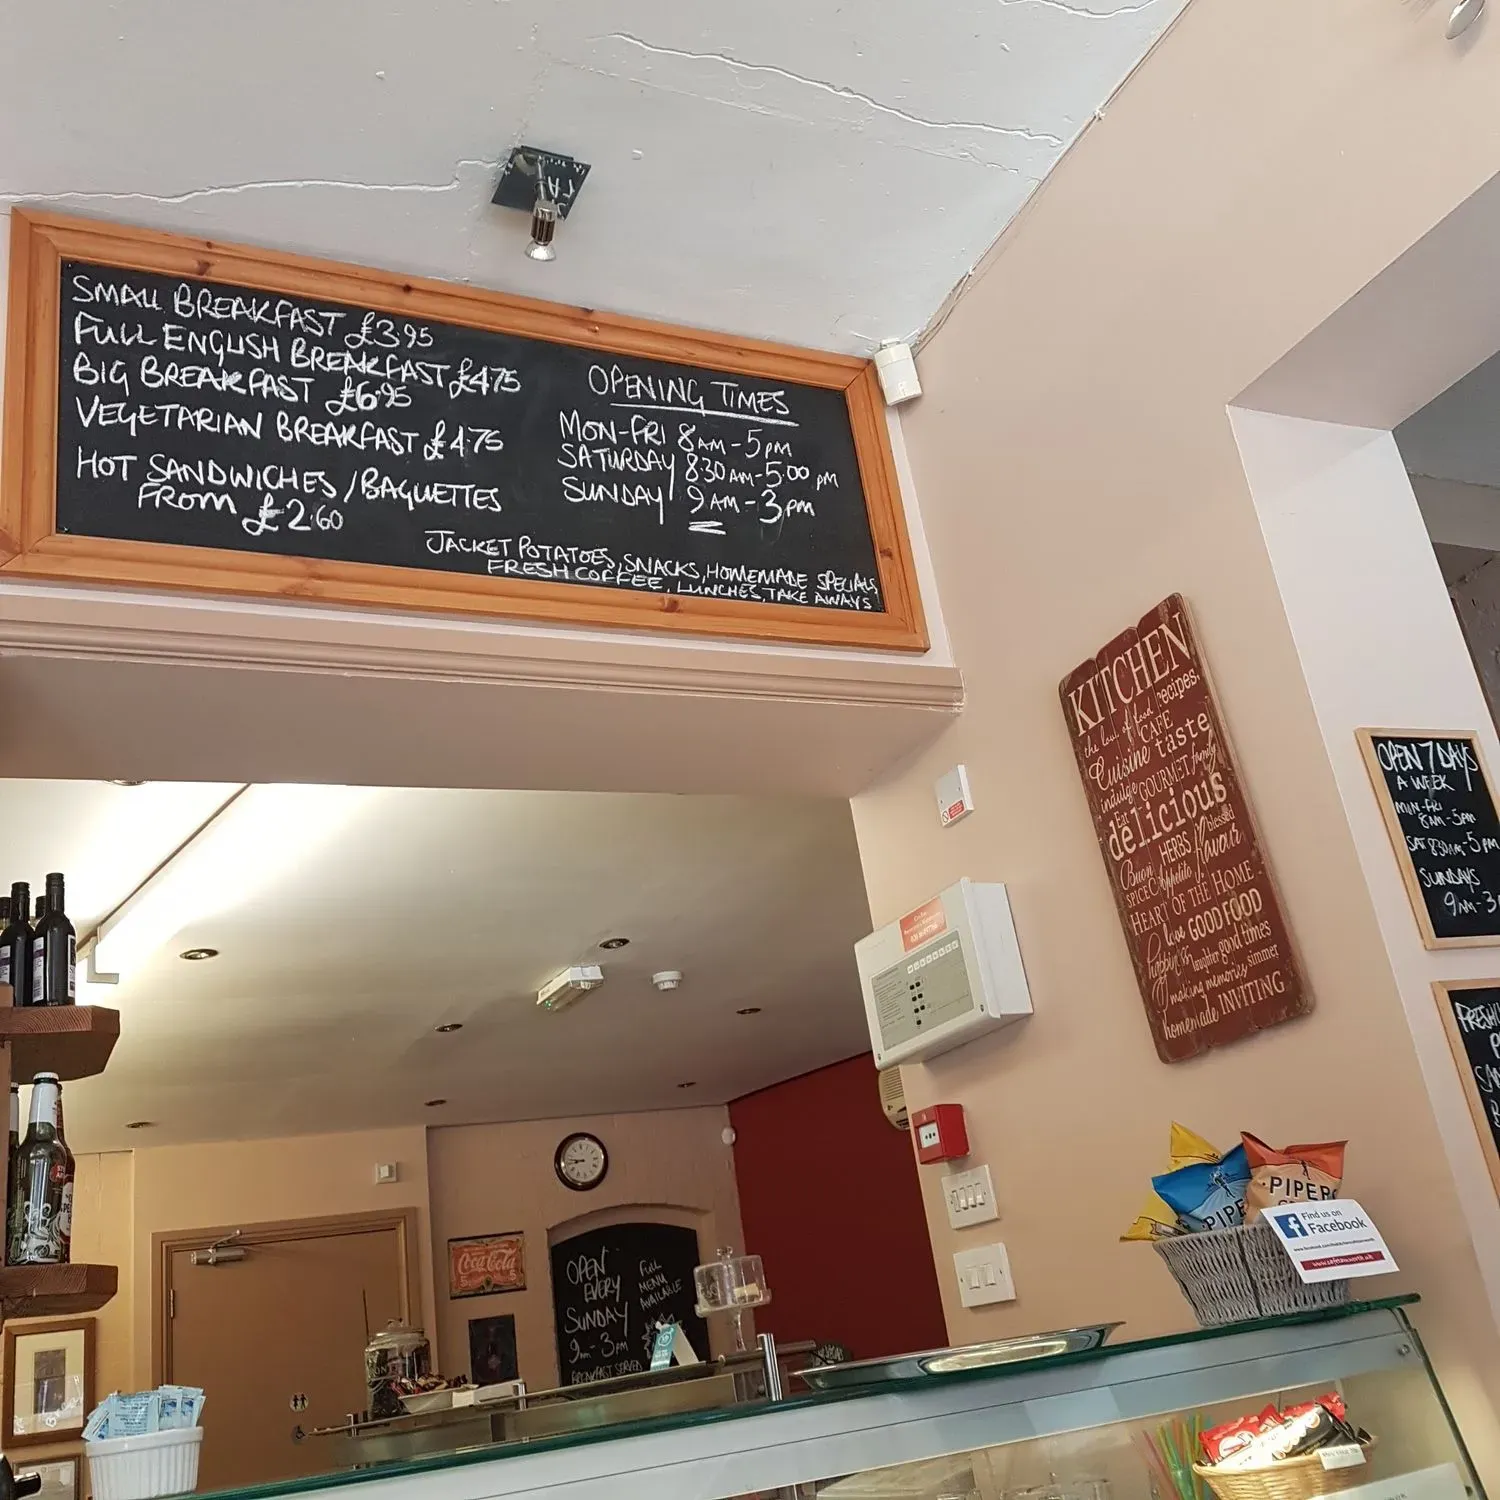 SMALL BREAKFAST £3.95
FULL ENGLISH BREAKFAST £4.75
BIG BREAKFAST £6.95
VEGETARIAN BREAKFAST £4.75
HOT SANDWICHES/BAGUETTES
FROM £2.60
OPENING TIMES
MON-FRI 8AM-5PM
SATURDAY 8:30AM-5:00 PM
SUNDAY 9AM-3PM
JACKET POTATOES, SNACKS, HOMEMADE SPECIALS,
FRESH COFFEE, LUNCHES, TAKE AWAYS
KITCHEN
the love of food recipes.
CAFE
Cuisine taste
indulge GOURMET family
Eat
delicious
HERBS blessed
Buon Appetito flavour
SPICE
HEART OF THE HOME
love GOOD FOOD
laughter good times
making memories simmer
homemade INVITING
OPEN 7 DAYS
A WEEK
MON-FRI
8AM-5PM
SAT 8:30AM-5PM
SUNDAYS
9AM-3
PIPERS
PIPE
Find us on
Facebook
Coca-Cola
OPEN
EVERY
SUNDAY
9AM-3PM
BREAKFAST SERVED
FULL
MENU
AVAILABLE